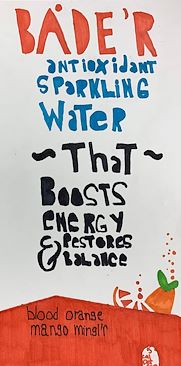 BÅDE'R
antioxidant
SPARKLING
WATER
~ThaT~
BOOSTS
ENERGY
& RESTORES
BALANCE
blood orange
mango mingl'r